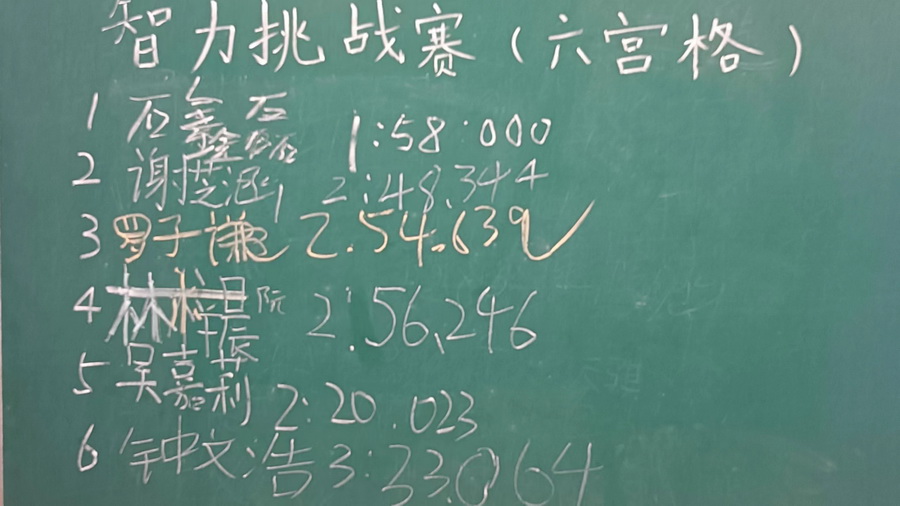 智力挑战赛（六宫格）
1 石鑫 1:58:000
2 谢梵涵 2:48.344
3 罗子谦 2.54.639
4 林 2:56.246
5 吴嘉莉 2:20.023
6 钟文浩 3:33.064